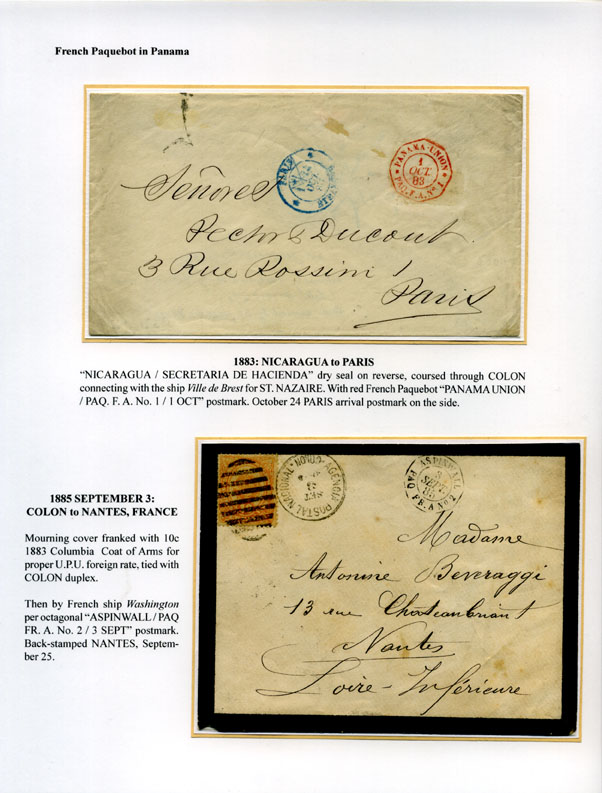 French Paquebot in Panama
PARIS
PANAMA-UNION
1
OCT
83
PAQ. F. A. Nº 1
Señores
Pector & Ducout
3 Rue Rossini
Paris
1883: NICARAGUA to PARIS
“NICARAGUA / SECRETARIA DE HACIENDA” dry seal on reverse, coursed through COLON
connecting with the ship Ville de Brest for ST. NAZAIRE. With red French Paquebot “PANAMA UNION
/ PAQ. F. A. No. 1 / 1 OCT” postmark. October 24 PARIS arrival postmark on the side.
1885 SEPTEMBER 3:
COLON to NANTES, FRANCE
Mourning cover franked with 10c
1883 Columbia Coat of Arms for
proper U.P.U. foreign rate, tied with
COLON duplex.
Then by French ship Washington
per octagonal “ASPINWALL / PAQ
FR. A. No. 2 / 3 SEPT” postmark.
Back-stamped NANTES, Septem-
ber 25.
AGENCIA POSTAL NACIONAL
COLON
SET
ASPINWALL
3
SEPT
85
PAQ FR. A Nº 2
Madame
Antonine Beveraggi
13 rue Chateaubriant
Nantes
Loire-Inférieure